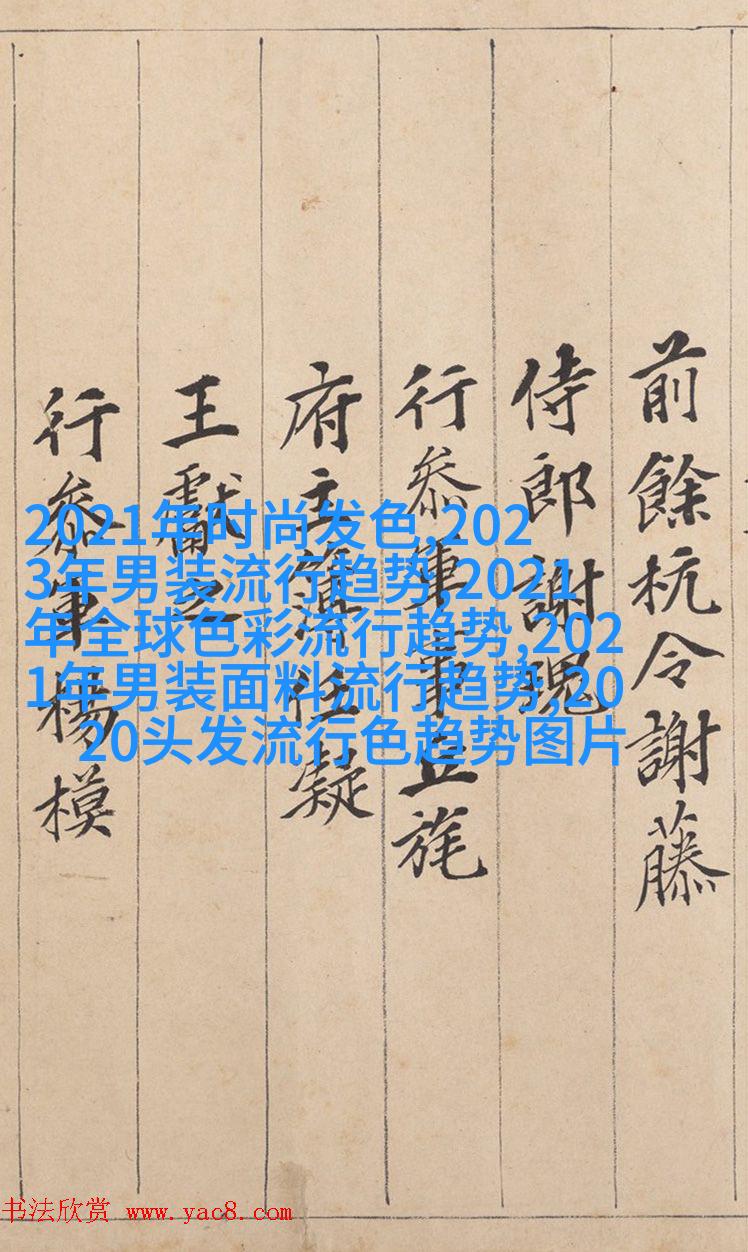 前餘杭令謝藤
侍郎謝瑰
行叅軍事丘旄
府主簿任凝
王獻之
行叅軍楊模
2021年时尚发色,202
3年男装流行趋势,2021
年全球色彩流行趋势,202
1年男装面料流行趋势,20
20头发流行色趋势图片
书法欣赏 www.yac8.com